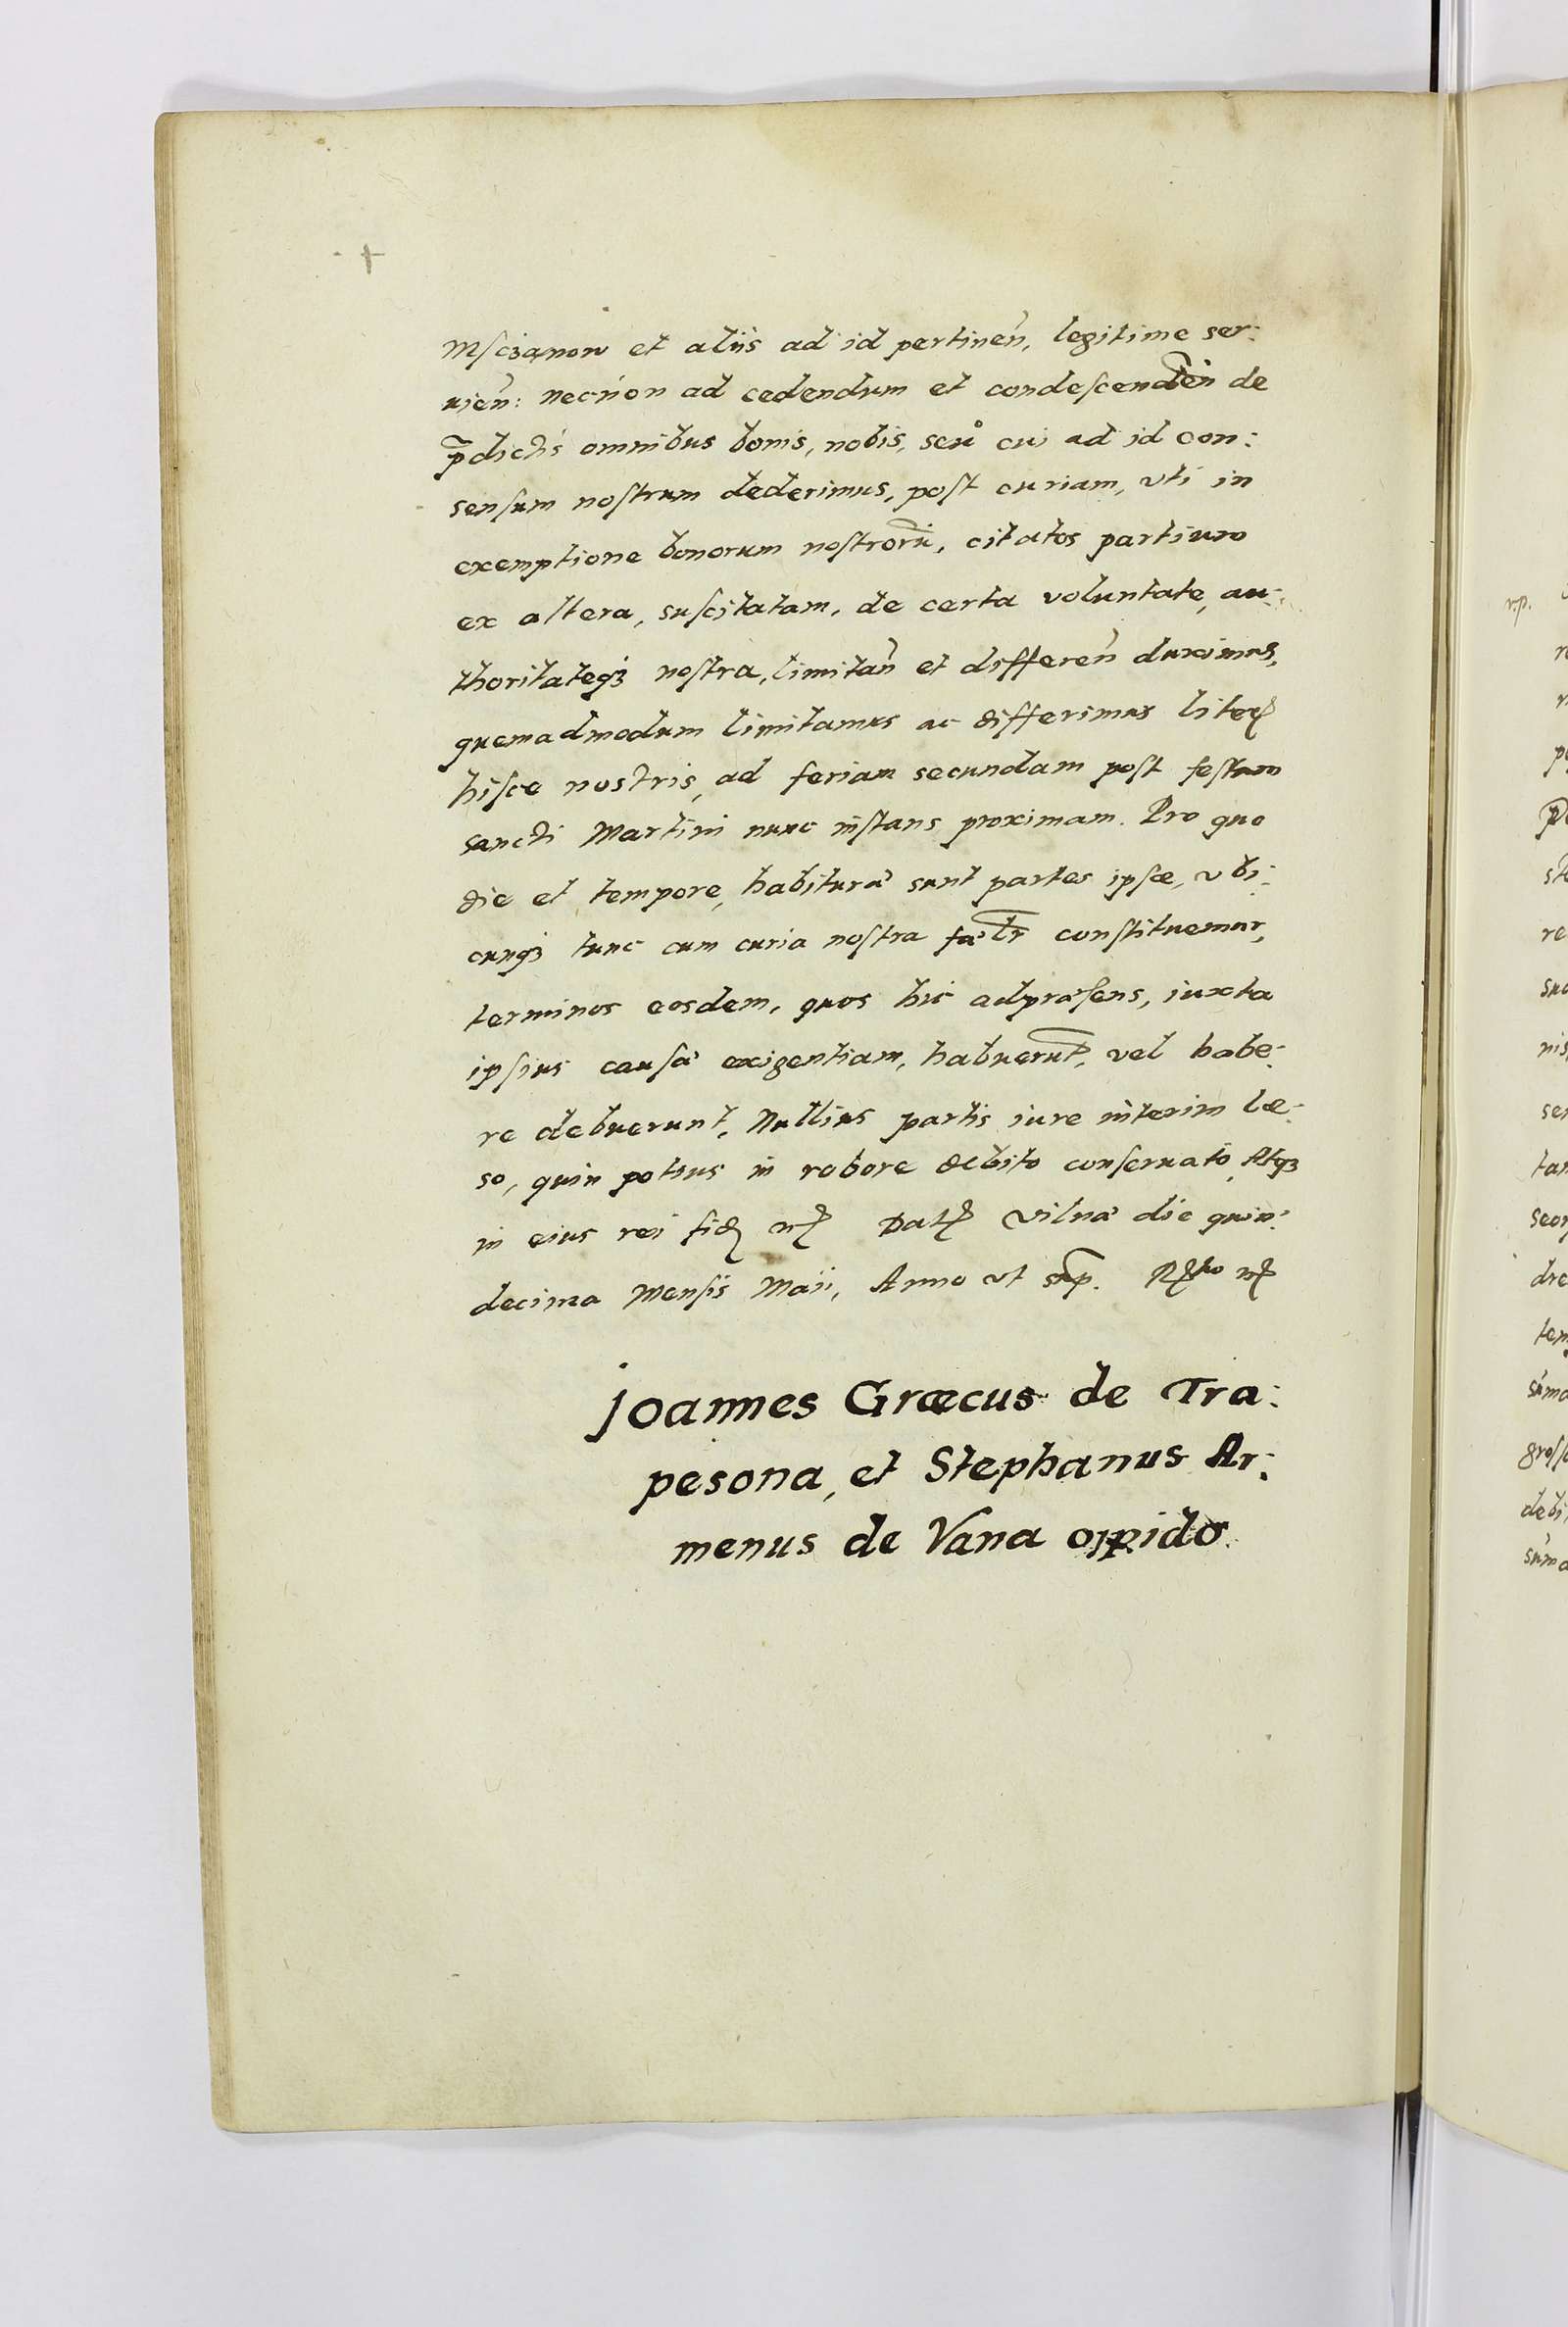 Msczanow et aliis ad id pertineñ, legitime ser:
uieñ: necnon ad cedendum et condescendeñ de
p̄dictis omnibus bonis, nobis, seu cui ad id con:
sensum nostrum dederimus, post curiam, vti in
exemptione bonorum nostrorū, citatos partium
ex altera, suscitatam, de certa voluntate, au:
thoritateqꝫ nostra, limitañ et differeñ duximus,
quemadmodum limitamus ac differimus literꝭ
hisce nostris, ad feriam secundam post festum
sancti Martini nunc instans proximam. Pro quo
die et tempore, habituræ sunt partes ipsæ, vbi:
cunqꝫ tunc cum curia nostra fœlr̄ constituemur,
terminos eosdem, quos hic adpræsens, iuxta
ipsius causæ exigentiam, habuerunt, vel habe:
re debuerunt, Nullius partis iure interim læ:
so, quin potius in robore debito conseruato, Atqꝫ
in eius rei fidꝭ rꝭ Datꝭ Vilnæ die quin:
decima Mensis Maii, Anno vt sup. Rꝭto rꝭ
Joannes Græcus de Tra:
pesona, et Stephanus Ar:
menus de Vana oppido.
r.p.